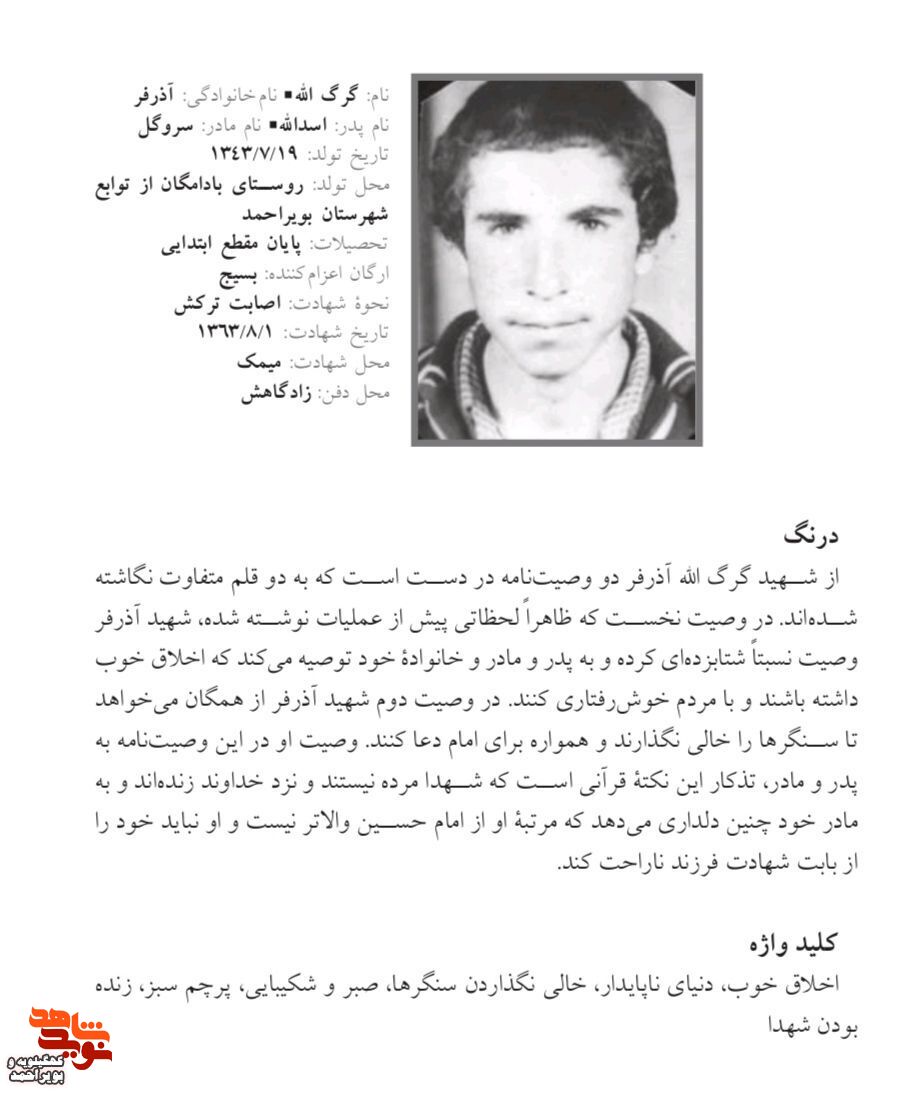 نام: گرگ الله▪ نام‌خانوادگی: آذرفر
نام پدر: اسدالله▪ نام مادر: سروگل
تاریخ تولد: ۱۳٤۳/۷/۱۹
محل تولد: روستای بادامگان از توابع
شهرستان بویراحمد
تحصیلات: پایان مقطع ابتدایی
ارگان اعزام‌کننده: بسیج
نحوۀ شهادت: اصابت ترکش
تاریخ شهادت: ۱۳٦۳/۸/۱
محل شهادت: میمک
محل دفن: زادگاهش
درنگ
از شهید گرگ الله آذرفر دو وصیت‌نامه در دست است که به دو قلم متفاوت نگاشته
شده‌اند. در وصیت نخست که ظاهراً لحظاتی پیش از عملیات نوشته شده، شهید آذرفر
وصیت نسبتاً شتابزده‌ای کرده و به پدر و مادر و خانوادۀ خود توصیه می‌کند که اخلاق خوب
داشته باشند و با مردم خوش‌رفتاری کنند. در وصیت دوم شهید آذرفر از همگان می‌خواهد
تا سنگرها را خالی نگذارند و همواره برای امام دعا کنند. وصیت او در این وصیت‌نامه به
پدر و مادر، تذکار این نکتۀ قرآنی است که شهدا مرده نیستند و نزد خداوند زنده‌اند و به
مادر خود چنین دلداری می‌دهد که مرتبۀ او از امام حسین والاتر نیست و او نباید خود را
از بابت شهادت فرزند ناراحت کند.
کلید واژه
اخلاق خوب، دنیای ناپایدار، خالی نگذاردن سنگرها، صبر و شکیبایی، پرچم سبز، زنده
بودن شهدا
نوید شاهد
کهگیلویه و
بویراحمد